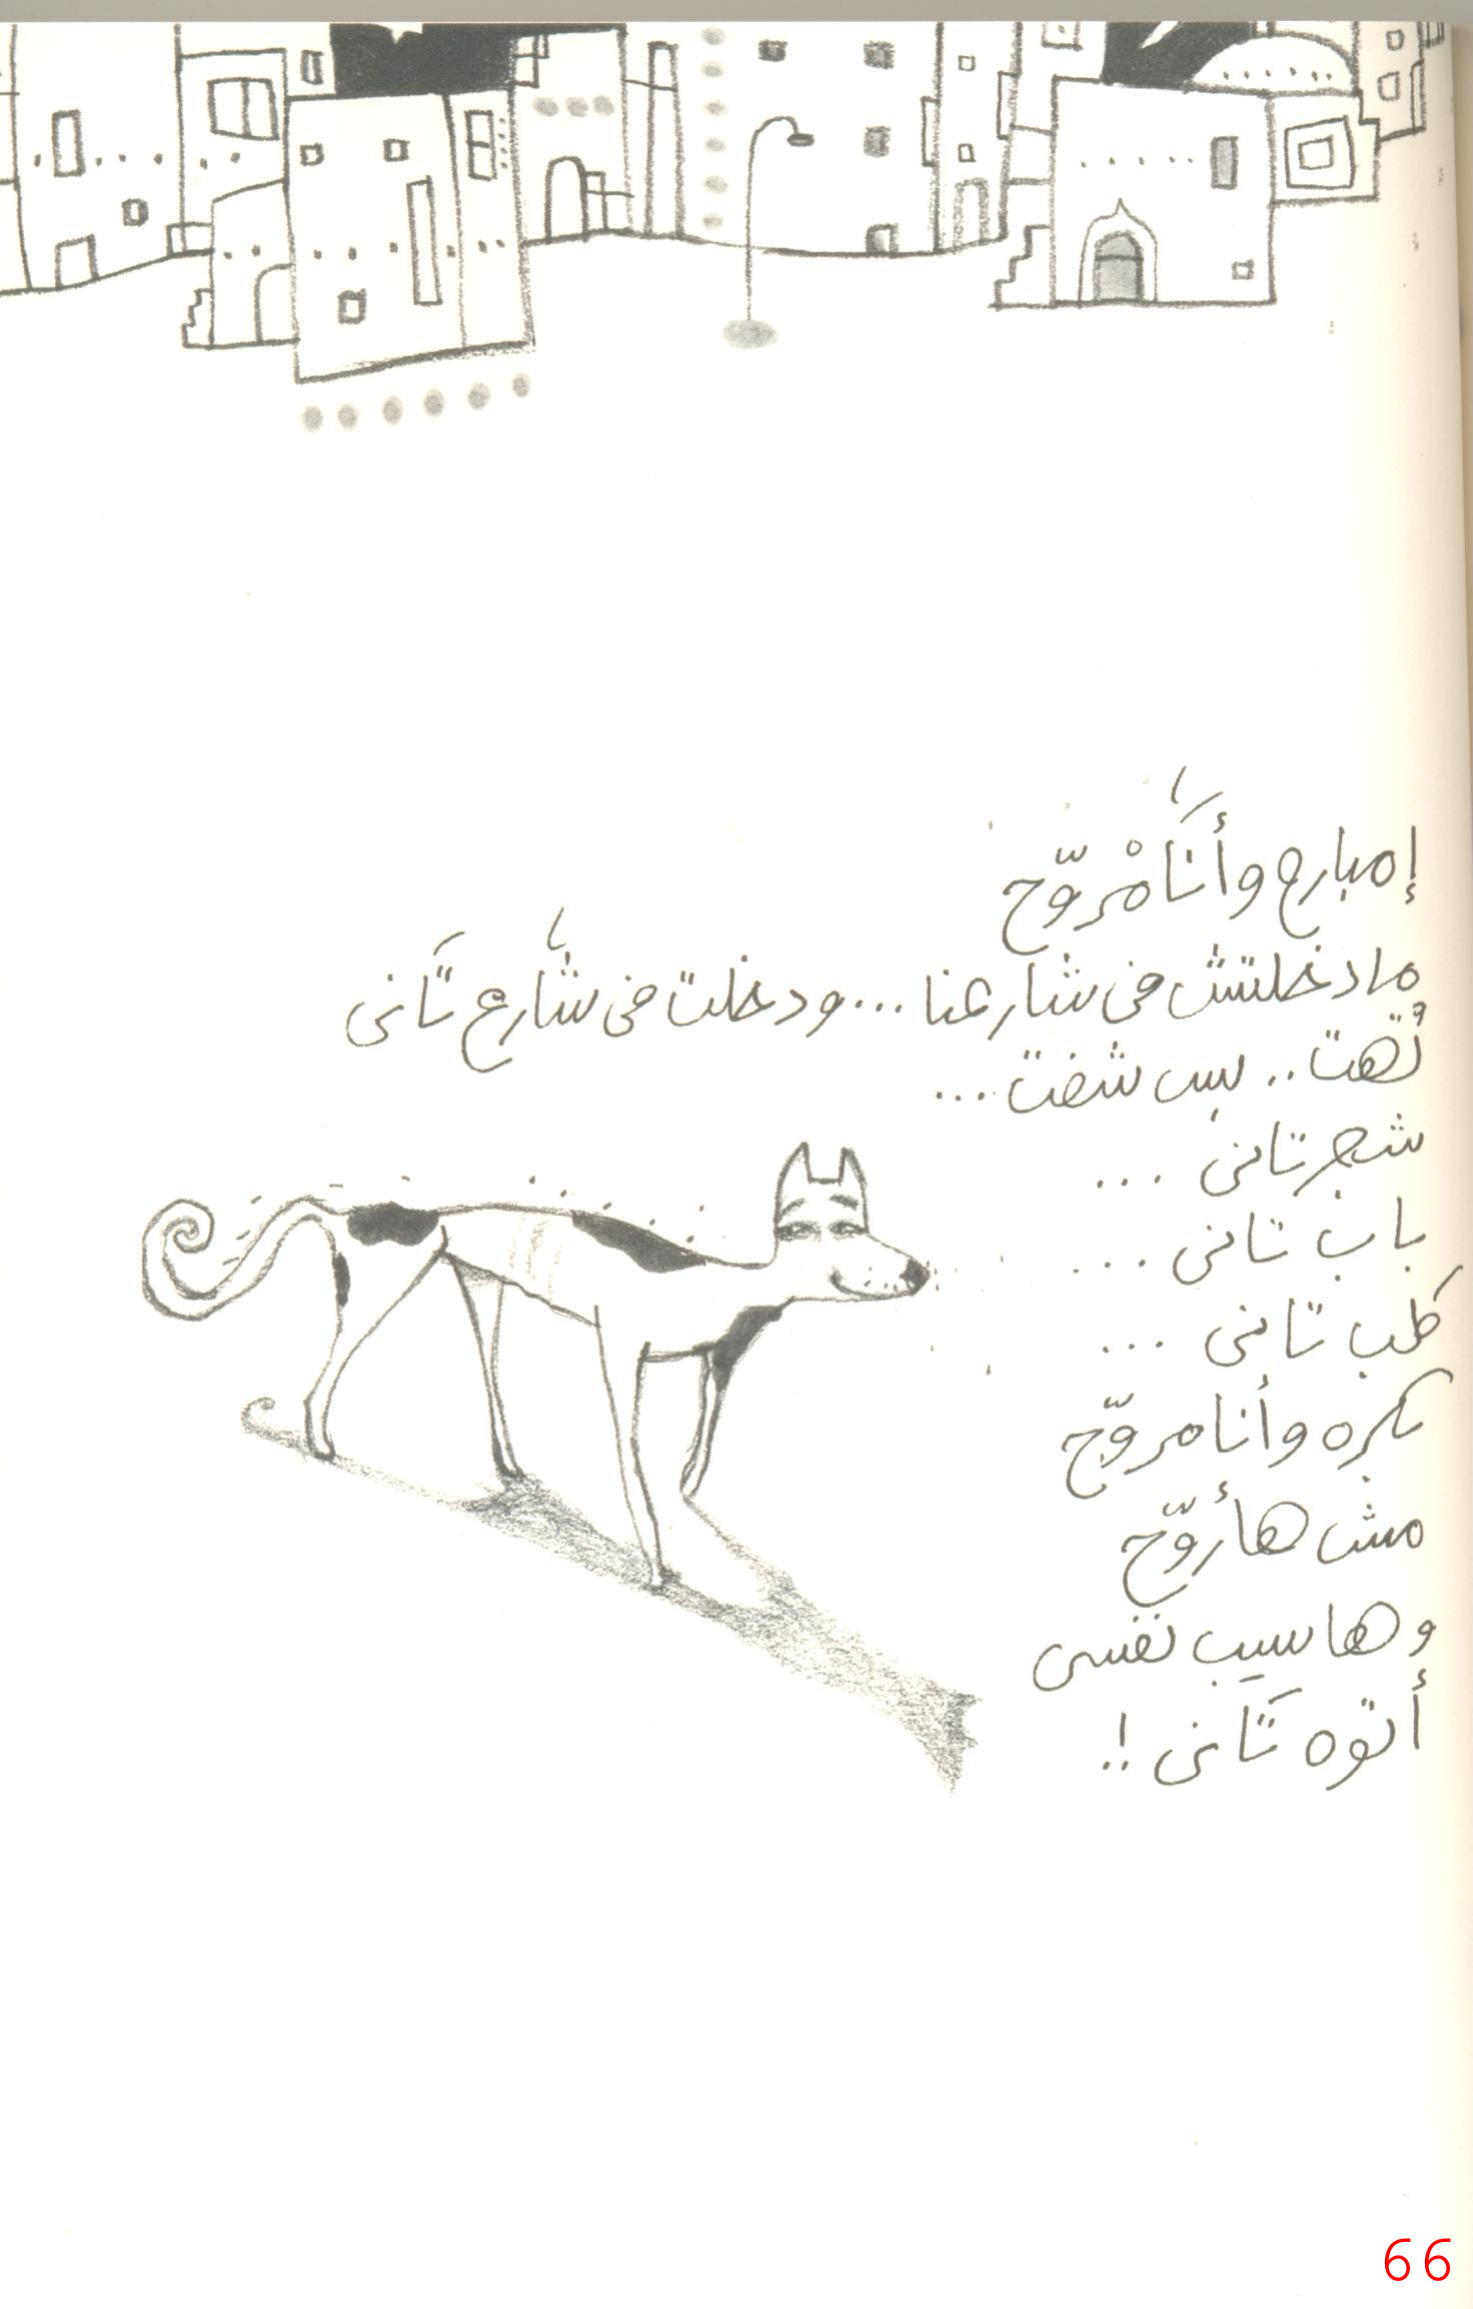 إمبارح وأنَا مْروّح
مادخلتش فى شارعنا ...ودخلت فى شارع تَانى
تُهت.. بس شفت ...
شجر تانى ...
باب تانى ...
كلب تانى ...
بكره وأنا مروّح
مش هأروّح
وهاسيب نفسى
أتوه تَانى !..
66